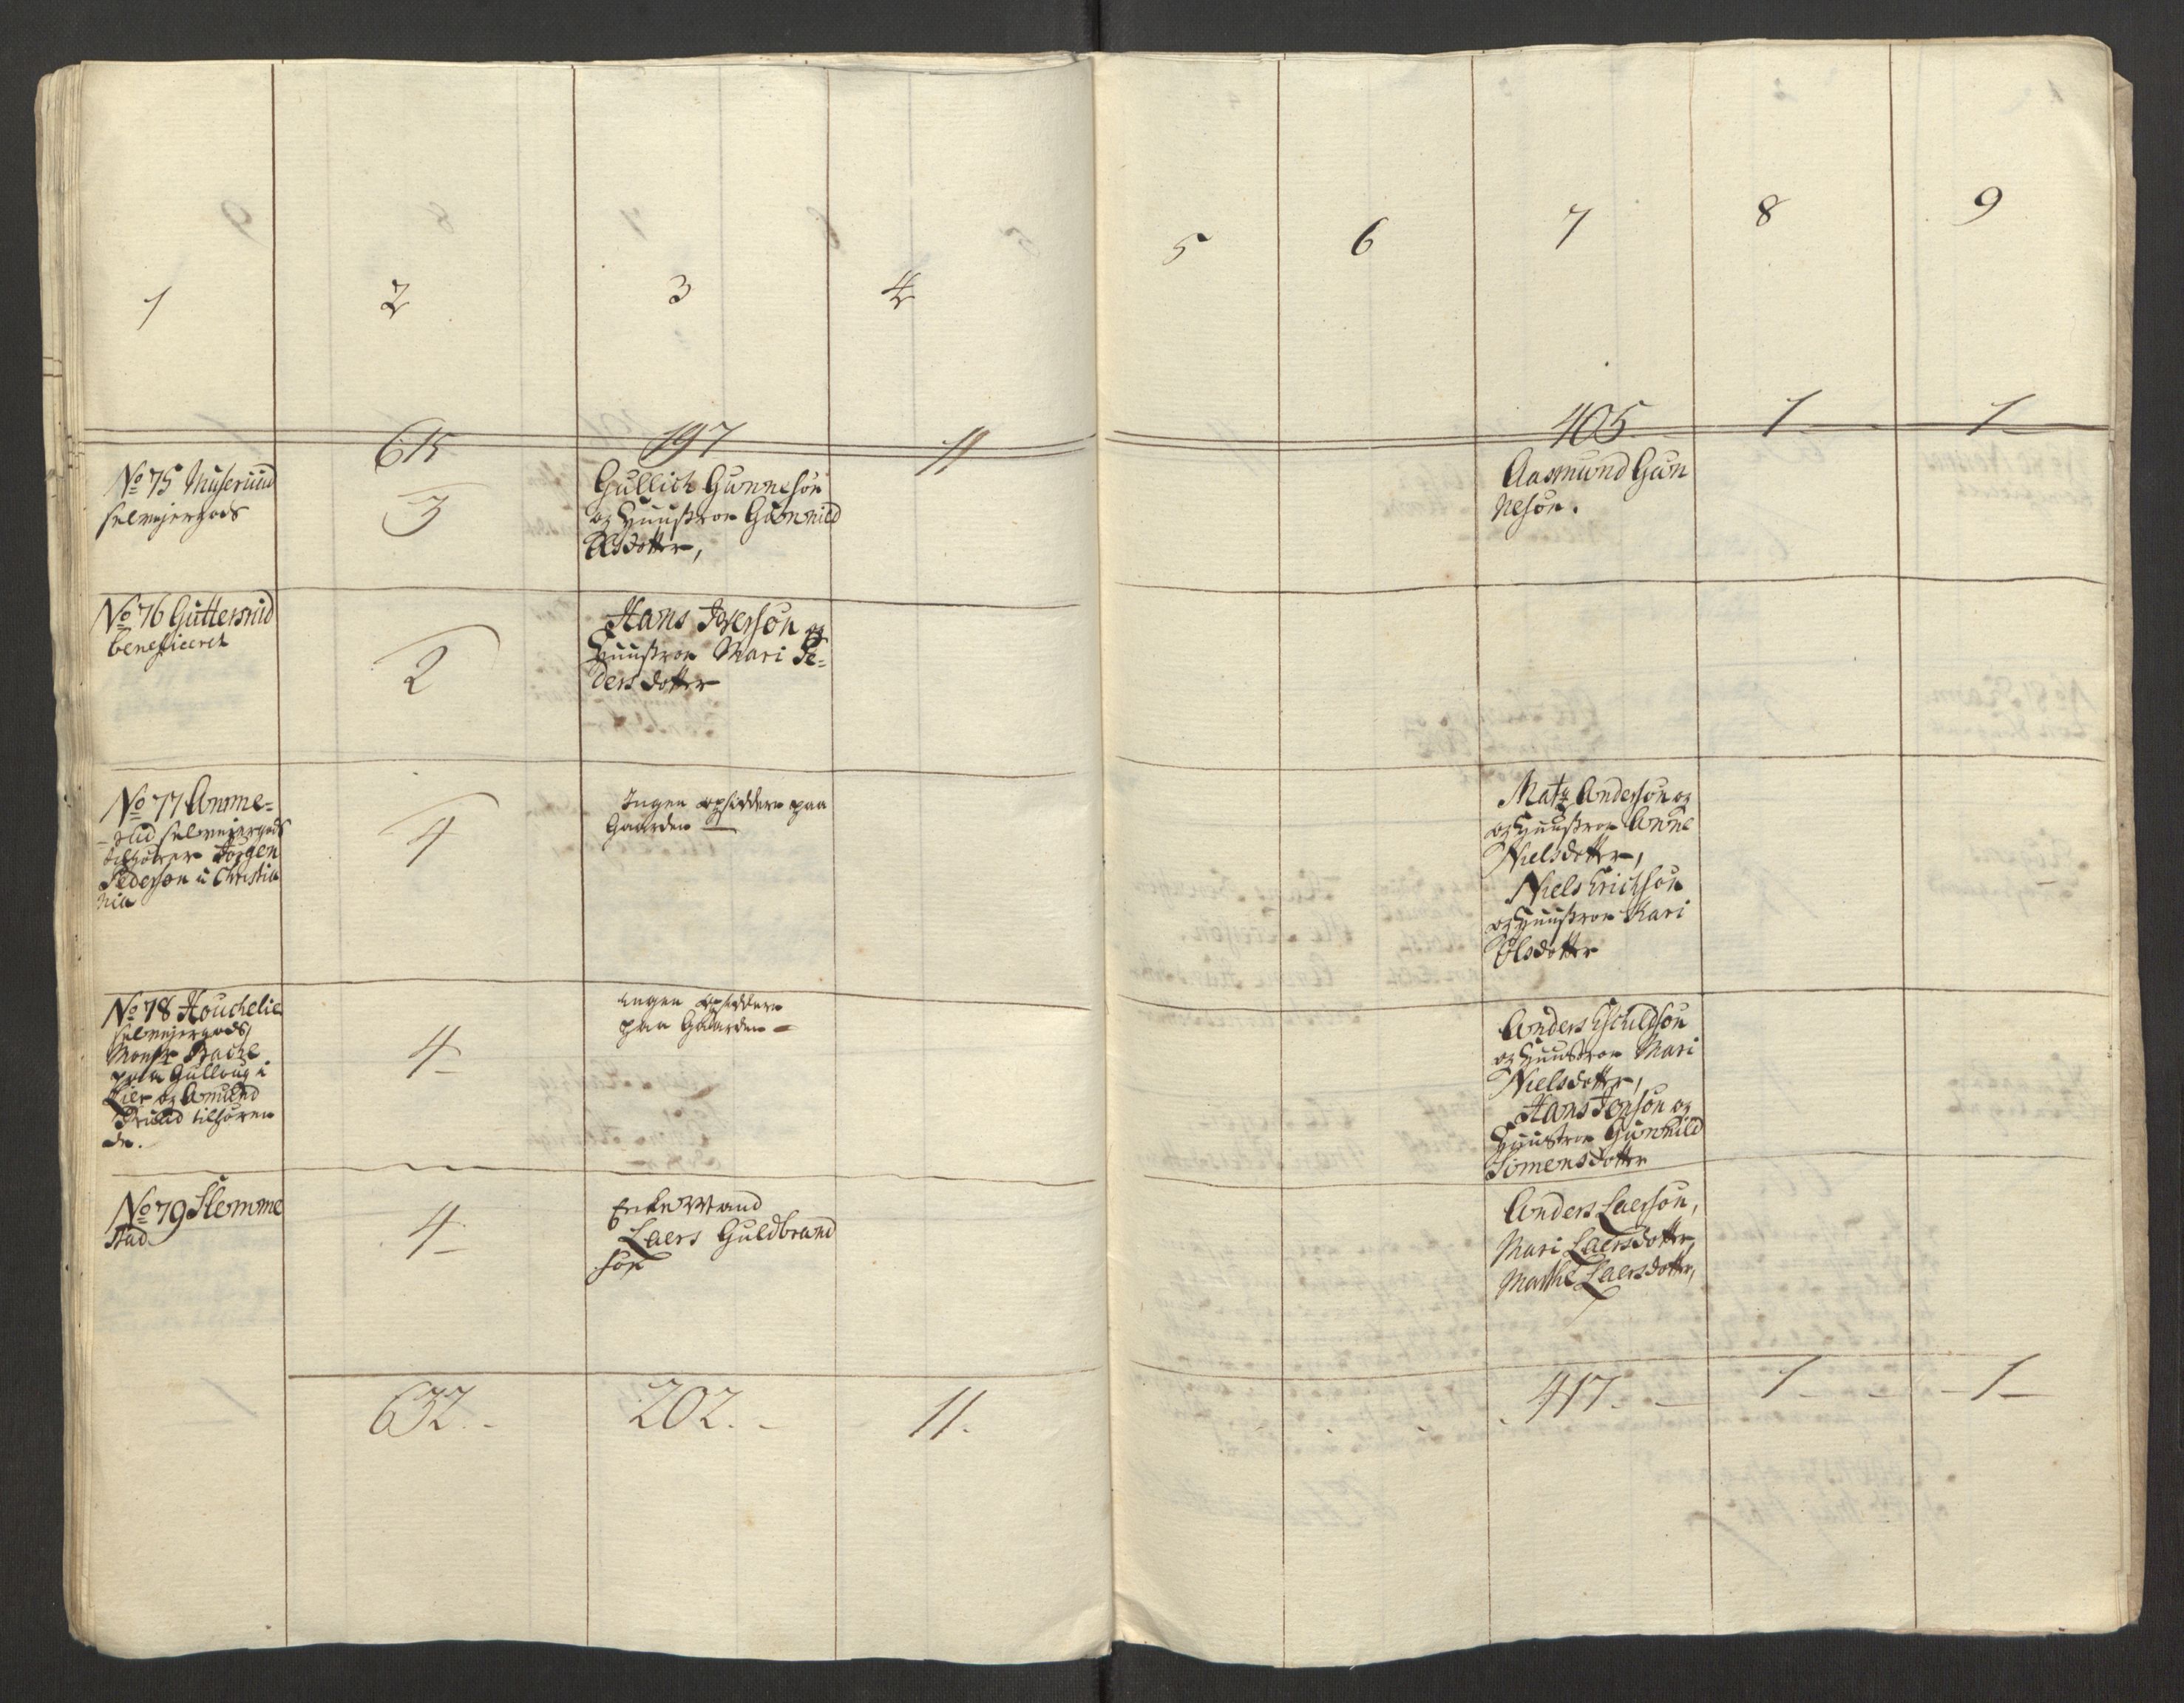 1
2
3
4
5
6
7
8
9
615
197
11
405
1
1
No 75 Muserud
selveyergods
3
Gullich Gunnesøn
og Huustroe Gunnild
Olsdotter,
Aasmund Gun
nesøn.
No 76 Guttersrud
beneficeret
2
Hans Iversøn og
Huustroe Mari Pe-
ders dotter
No 77 Amme-
rud selveyergods
tilhører Jørgen
Pedersøn i Christia
nia
4
Ingen opsiddere paa
Gaarden
Matz Andersøn og
og Huustroe Anne
Nielsdotter,
Niels Erichsøn
og Huustroe Kari
Olsdotter
No 78 Houchelie
selveyergods,
Monsr Bache
paa Gulloug i
Lier og Amund
tilhøren
de.
4
ingen opsiddere
paa Gaarden
Anders Eschildsøn
og Huustroe Mari
Nielsdotter,
Hans Jensøn og
Huustroe Gunhild
Simensdotter
No 79 Slemme
stad
4
Enke Mand
Laers Guldbrand
søn
Anders Laersøn,
Mari Laersdotter,
Marthe Laersdotter,
632.
202.
11.
417.
1
1